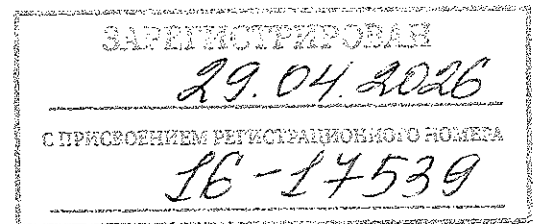 ЗАРЕГИСТРИРОВАН
29.04.2026
С ПРИСВОЕНИЕМ РЕГИСТРАЦИОННОГО НОМЕРА
16-17539